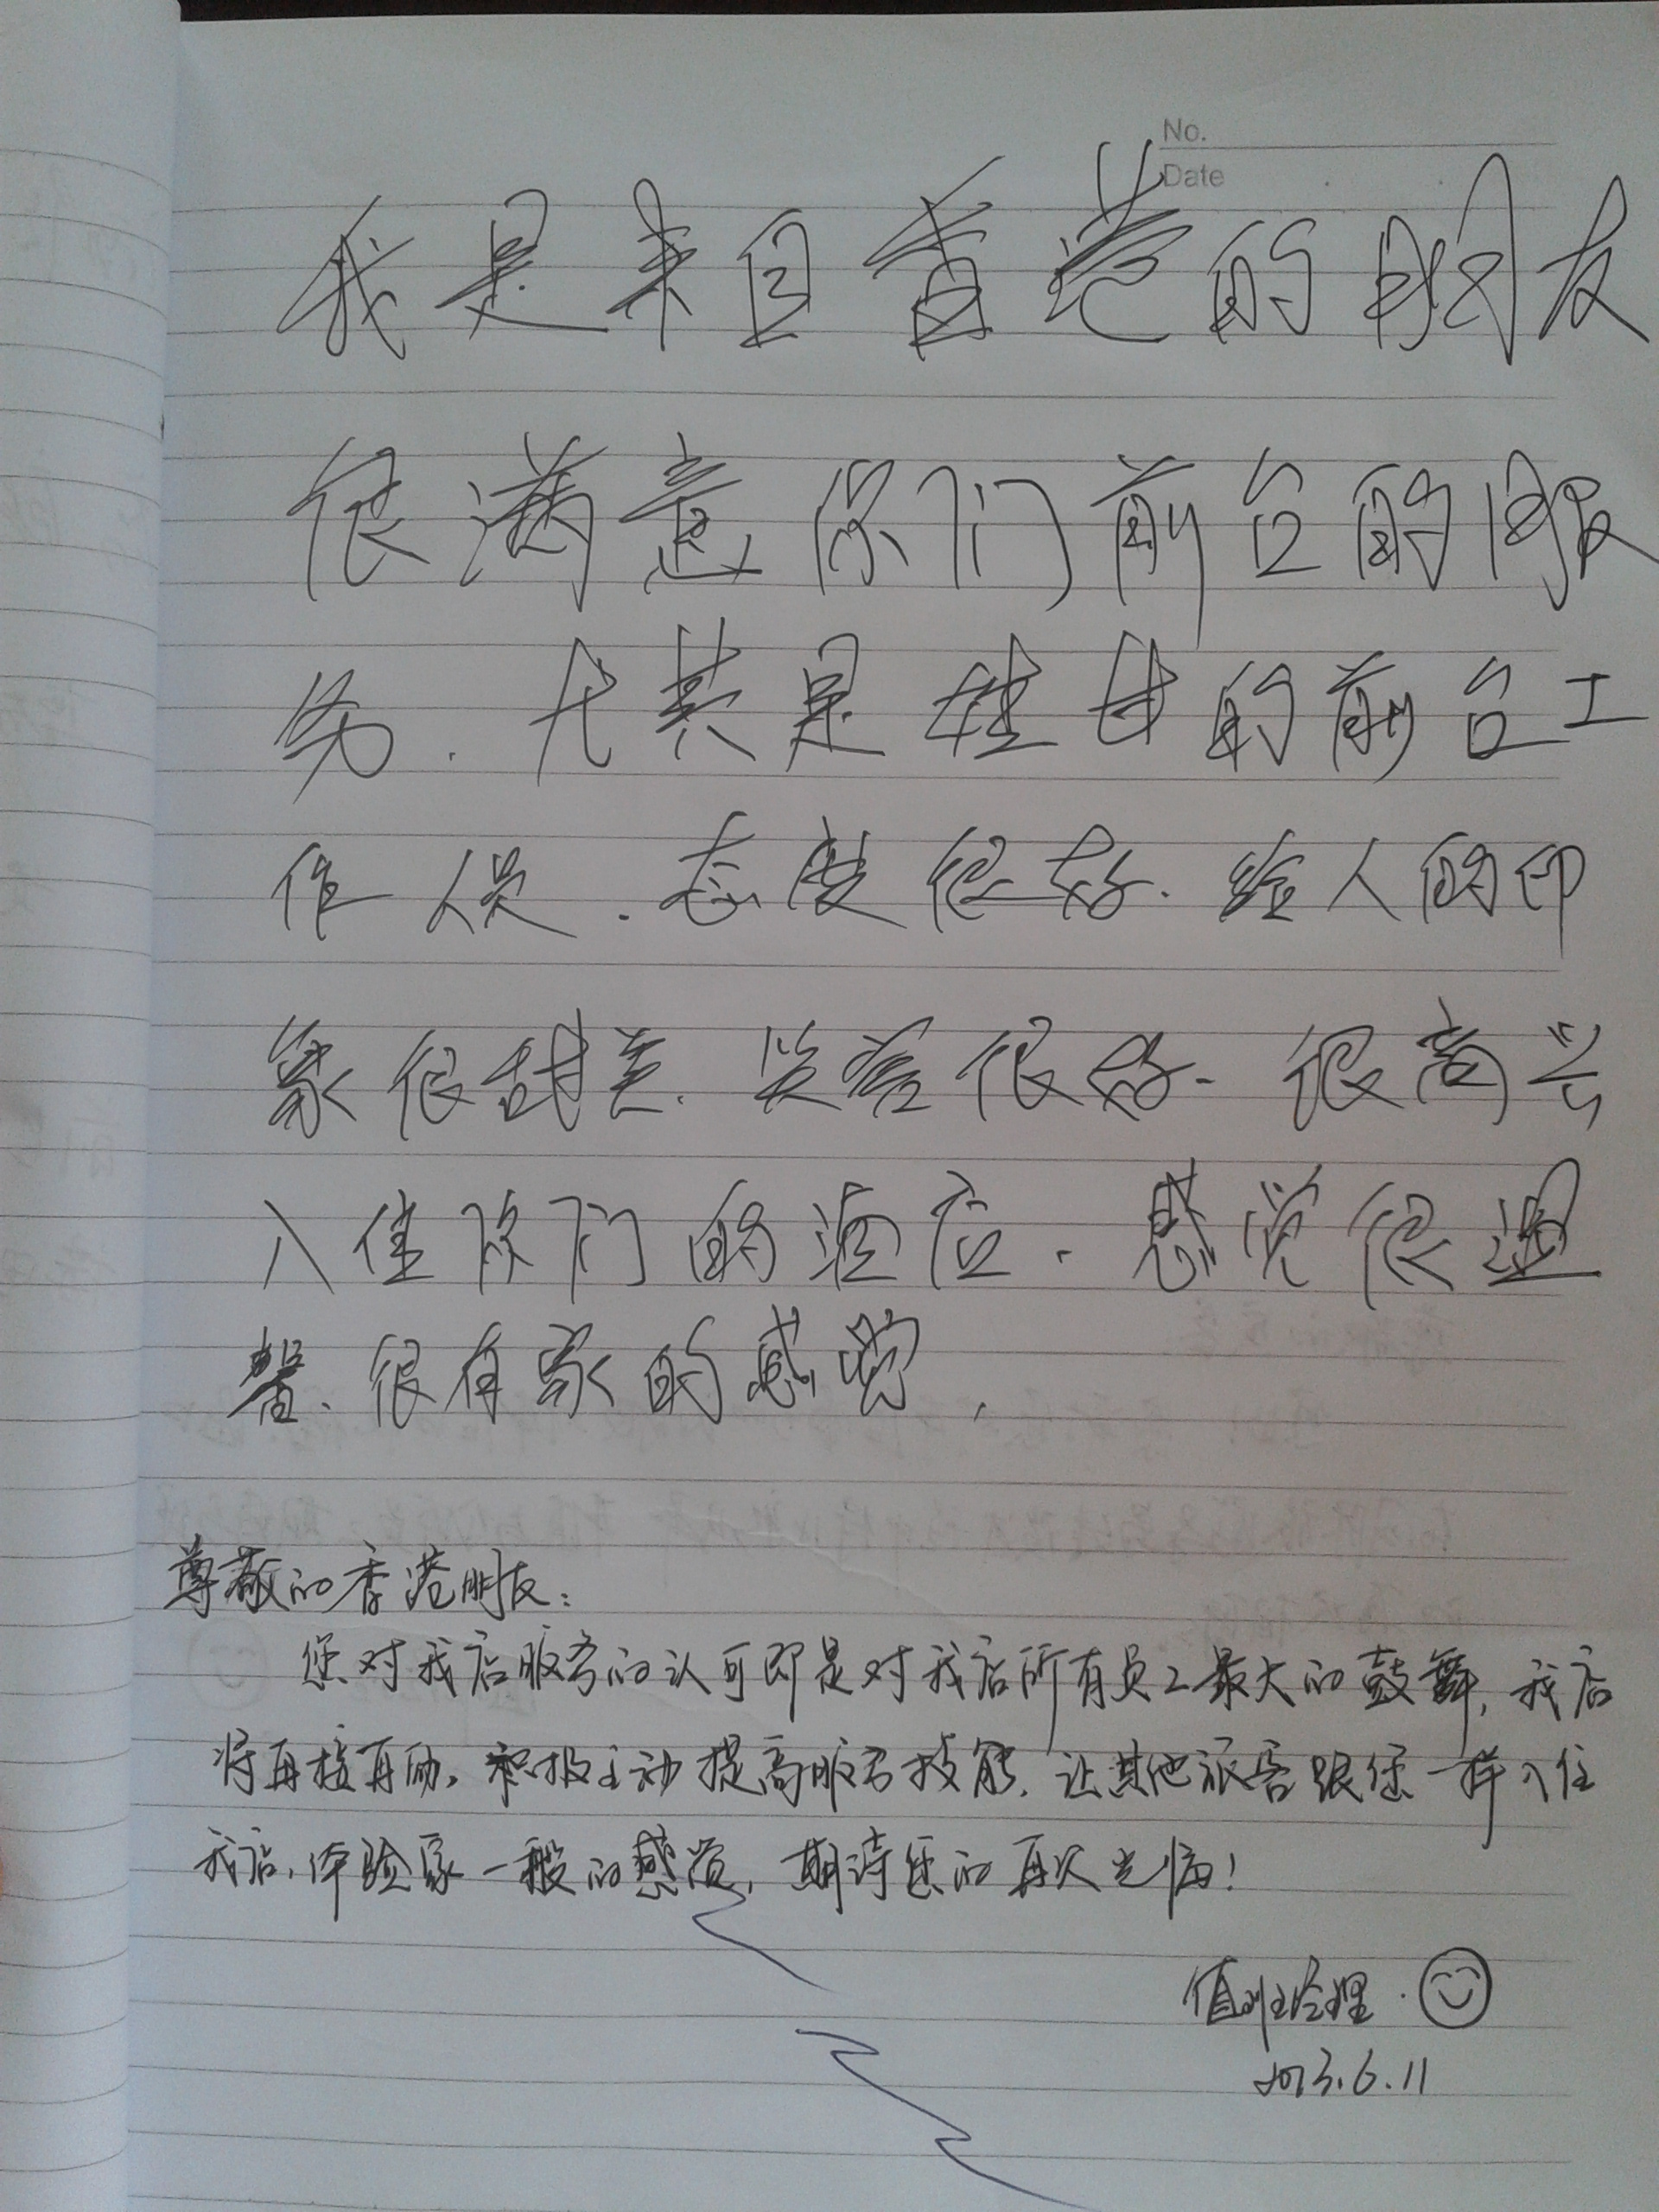 No.
Date
我是来自香港的朋友
很满意你们前台的服
务.尤其是 的前台工
作人员.态度很好.给人的印
象很甜美.笑容很好.很高兴
入住你们的酒店.感觉很温
馨、很有家的感觉,
尊敬的香港朋友:
您对我店服务的认可即是对我店所有员工最大的鼓舞,我店
将再接再励,积极主动提高服务技能,让其他旅客跟您一样入住
我店,体验家一般的感觉,期待您的再次光临!
值班经理.
2013.6.11